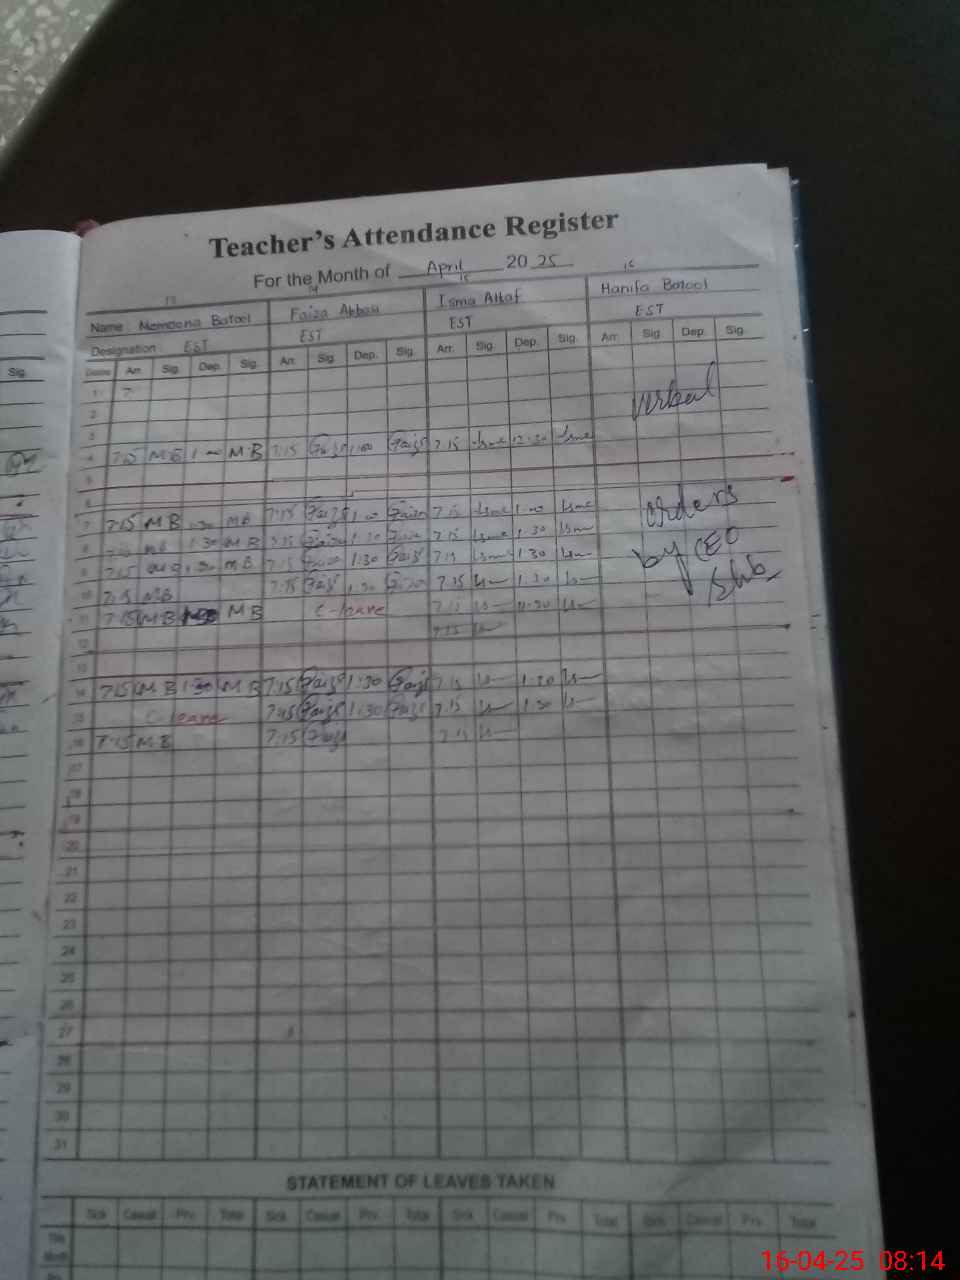 Teacher's Attendance Register
For the Month of April 20 25
13 14 15 16
Name: Memoona Batool Faiza Abbasi Isma Altaf Hanifa Batool
Designation: EST EST EST EST
Dates Arr. Sig. Dep. Sig. Arr. Sig. Dep. Sig. Arr. Sig. Dep. Sig. Arr. Sig. Dep. Sig.
Sig.
1 7
2
3
verbal
4 7:15 MB 1:00 MB 7:15 Faiza 1:00 Faiza 7:15 Isma 12:30 Isma
5
6
7 7:15 MB 1:30 MB 7:15 Faiza 1:00 Faiza 7:15 Isma 1:00 Isma
orders
8 MB 1:30 MB 7:15 Faiza 1:30 Faiza 7:15 Isma 1:30 Isma
9 7:15 MB 1:30 MB 7:15 Faiza 1:30 Faiza 7:15 Isma 1:30 Isma
by CEO
10 7:15 MB 7:15 Faiza 1:30 Faiza 7:15 1:30
11 7:15 MB MB C-leave 7:15
12 7:15
13
14 7:15 MB 1:30 MB 7:15 Faiza 1:30 Faiza 7:15 1:30
15 C-leave 7:15 Faiza 1:30 Faiza 7:15 1:30
16 7:15 MB 7:15 Faiza 7:15
17
18
19
20
21
22
23
24
25
26
27
28
29
30
31
STATEMENT OF LEAVES TAKEN
Sick Casual Prv. Total Sick Casual Prv. Total Sick Casual Prv. Total Sick Casual Prv. Total
This
Month
16-04-25 08:14